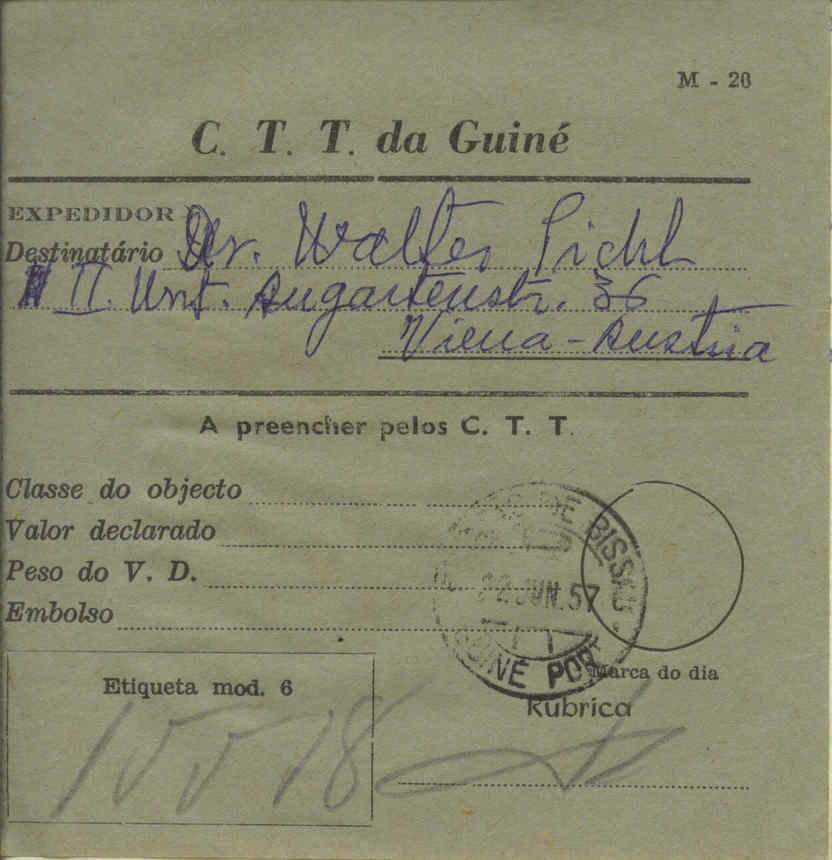 M - 20
C. T. T. da Guiné
EXPEDIDOR
Destinatário Dr. Walter Pichl
II. Unt. Augartenstr. 36
Viena - Austria
A preencher pelos C. T. T.
Classe do objecto
Valor declarado
Peso do V. D.
Embolso
DE BISSAU
22 JUN. 57
GUINÉ PORT
Marca do dia
Etiqueta mod. 6
Rubrica